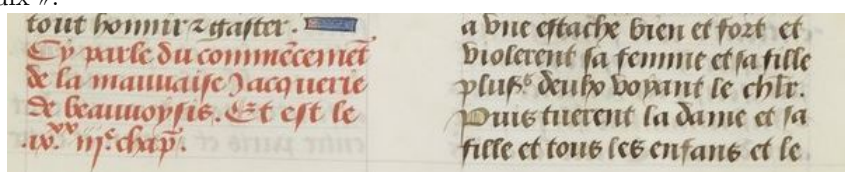 aix ».
tout honnir ⁊ gaster.
Cy parle du commēcemēt
de la mauuaise Jacquerie
de beauuoysis. Et est le
.ix.xx iije. chap̄.
a vne estache bien et fort et
violerent sa femme et sa fille
plus̾s deulx voyant le chl̄r.
Puis tuerent la dame et sa
fille et tous les enfans et le